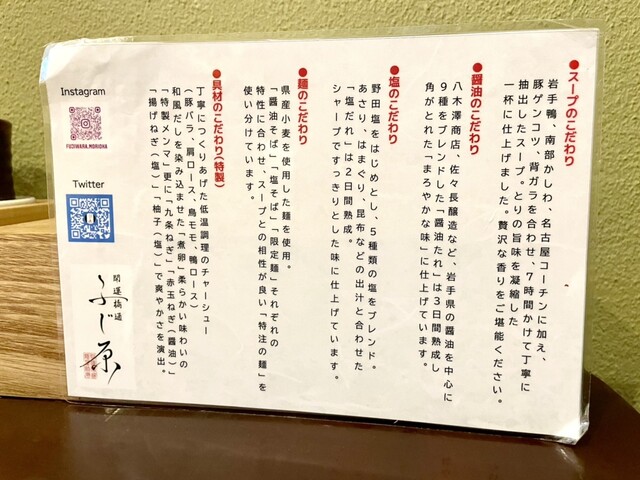 ●スープのこだわり
岩手鴨、南部かしわ、名古屋コーチンに加え、
豚ゲンコツ、背ガラを合わせ、7時間かけて丁寧に
抽出したスープ。とりの旨味を凝縮した
一杯に仕上げました。贅沢な香りをご堪能ください。
●醤油のこだわり
八木澤商店、佐々長醸造など、岩手県の醤油を中心に
9種をブレンドした「醤油たれ」は3日間熟成し
角がとれた「まろやかな味」に仕上げています。
●塩のこだわり
野田塩をはじめとし、5種類の塩をブレンド。
あさり、はまぐり、昆布などの出汁と合わせた
「塩だれ」は2日間熟成。
シャープですっきりとした味に仕上げています。
●麺のこだわり
県産小麦を使用した麺を使用。
「醤油そば」「塩そば」「限定麺」それぞれの
特性に合わせ、スープとの相性が良い「特注の麺」を
使い分けています。
●具材のこだわり(特製)
丁寧につくりあげた低温調理のチャーシュー
(豚バラ、肩ロース、鳥モモ、鴨ロース)
和風だしを染み込ませた「煮卵」柔らかい味わいの
「特製メンマ」更に「九条ねぎ」「赤玉ねぎ(醤油)」
「揚げねぎ(塩)」「柚子(塩)」で爽やかさを演出。
Instagram
FUJIWARA.MORIOKA
Twitter
開運橋通
ふじ原